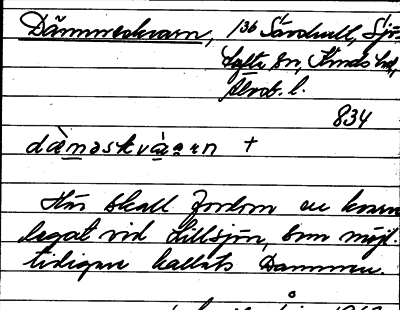 Dämmeskvarn, 136 Sävshult, Sjö-
tofta sn, Kinds hd,
Älvsb. l.
834
dämǝskvàɐn +
Här skall fordom en kvarn
legat vid Lillsjön, som möjl.
tidigare kallats Dammen.